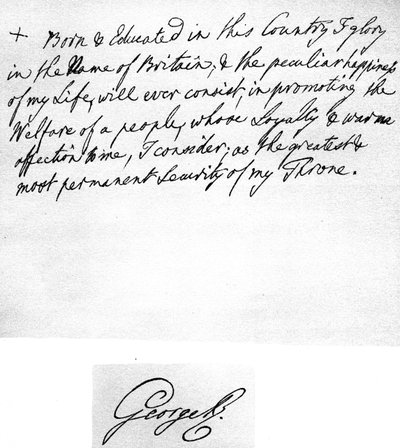 + Born & Educated in this Country I glory
in the Name of Britain; & the peculiar happiness
of my Life, will ever consist, in promoting the
Welfare of a people, whose Loyalty & warm
affection to me, I consider; as the greatest &
most permanent Security of my Throne.
George R.